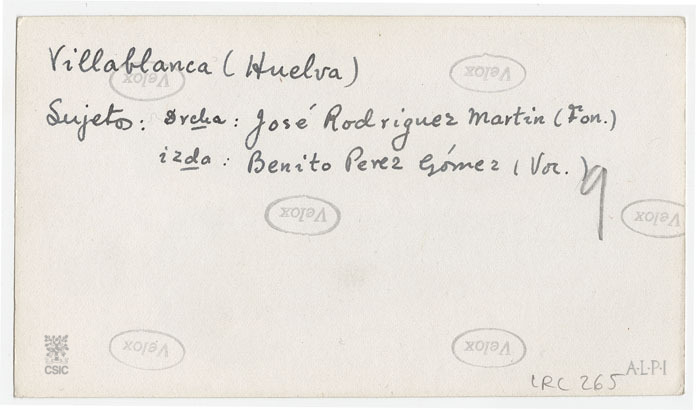 Villablanca (Huelva)
Velox
Velox
Sujetos: drcha: José Rodriguez Martin (Fon.)
izda: Benito Perez Gómez (Voc.)
9
Velox
Velox
Velox
Velox
CSIC
LRC 265
A·L·P·I